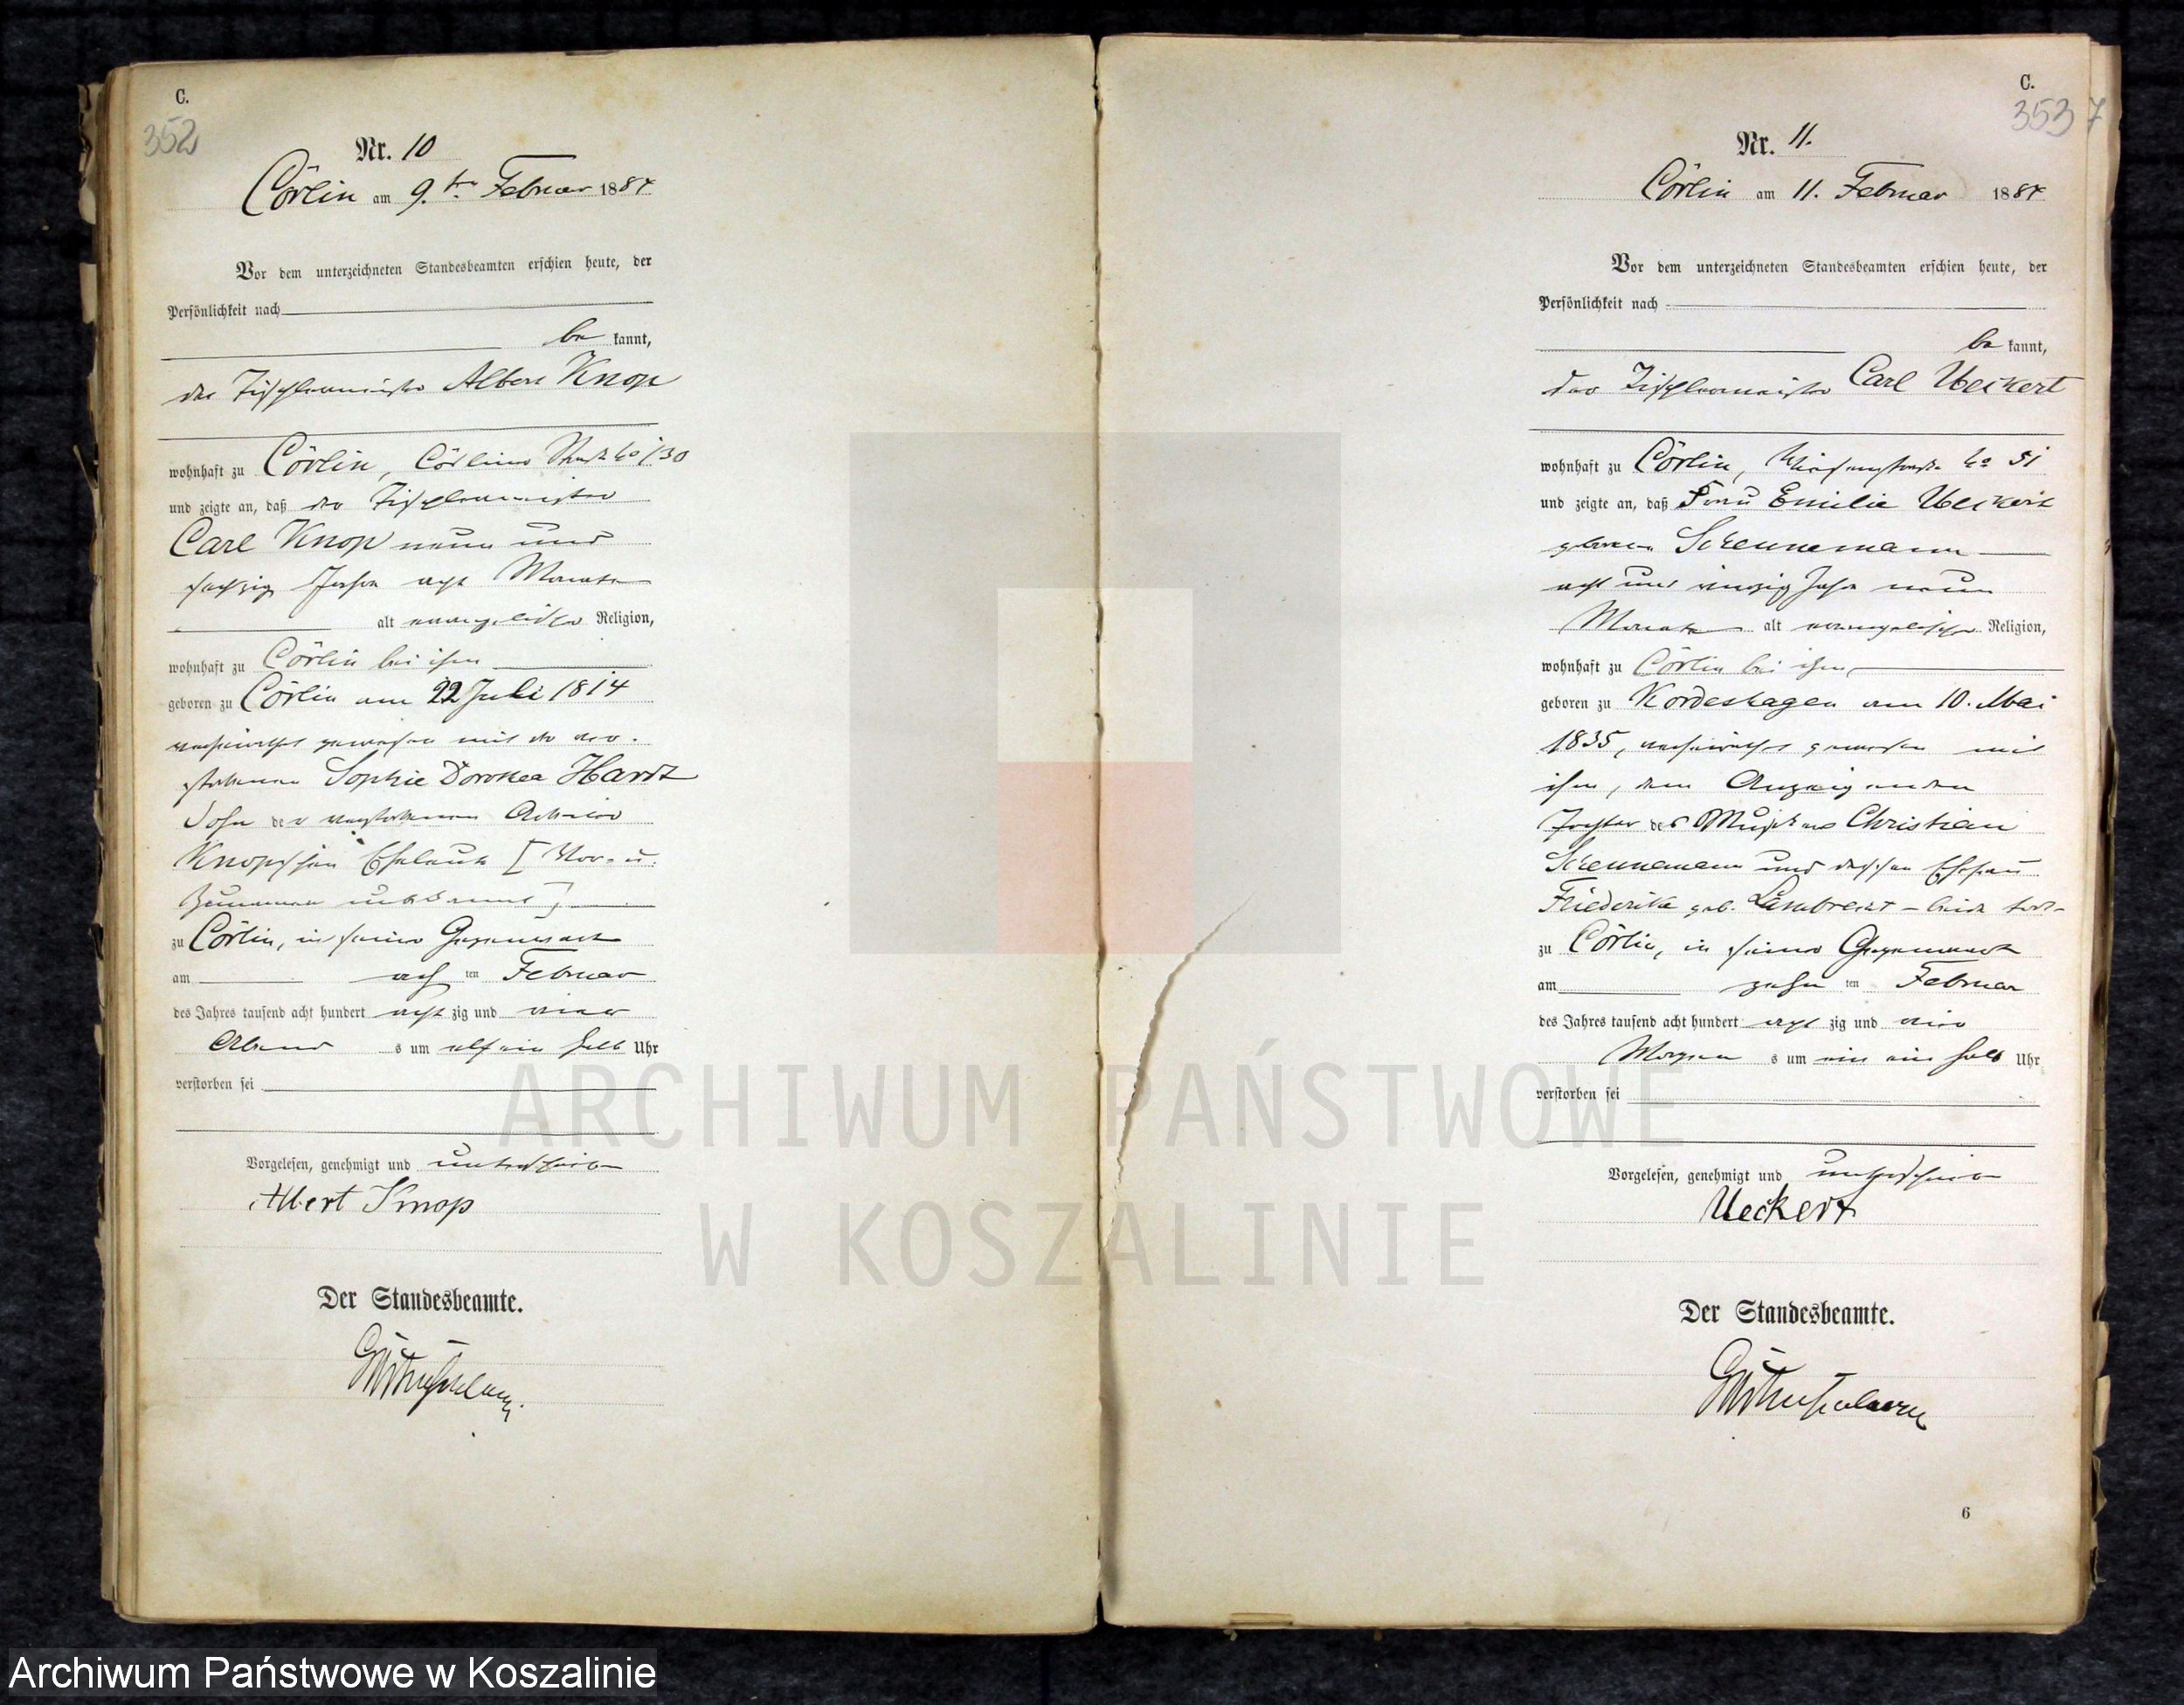 C.
352
Nr. 10
Cörlin am 9.ten Februar 1884
Vor dem unterzeichneten Standesbeamten erschien heute, der
Persönlichkeit nach
be kannt,
der Tischlermeister Albert Knop
wohnhaft zu Cörlin, Cösliner 130
und zeigte an, daß der Tischlermeister
Carl Knop neun und
sechzig Jahre acht Monate
alt evangelischer Religion,
wohnhaft zu Cörlin bei ihm
geboren zu Cörlin am 22 Juli 1814
verheirathet gewesen mit der ver-
storbenen Sophie Dorothea Hardt
Sohn der verstorbenen
Knop'schen Eheleute [Vor- u.
unbekannt]
zu Cörlin, in seiner Gegenwart
am acht ten Februar
des Jahres tausend acht hundert acht zig und vier
Abend s um elf ein halb Uhr
verstorben sei
Vorgelesen, genehmigt und unterschrieben
Albert Knop
Der Standesbeamte.
C.
353 7
Nr. 11.
Cörlin am 11. Februar 1884
Vor dem unterzeichneten Standesbeamten erschien heute, der
Persönlichkeit nach
be kannt,
der Tischlermeister Carl Ueckert
wohnhaft zu Cörlin, No 51
und zeigte an, daß Frau Emilie Ueckert
geborene
acht und vierzig Jahre neun
Monate alt evangelischer Religion,
wohnhaft zu Cörlin bei ihm,
geboren zu Kordeshagen am 10. Mai
1835, verheirathet gewesen mit
ihm, dem Anzeigenden
Tochter des Christian
und dessen Ehefrau
Friederike geb. Lambrecht - beide
zu Cörlin, in seiner Gegenwart
am zehn ten Februar
des Jahres tausend acht hundert acht zig und vier
Morgen s um ein ein halb Uhr
verstorben sei
Vorgelesen, genehmigt und unterschrieben
Ueckert
Der Standesbeamte.
6
ARCHIWUM PAŃSTWOWE
W KOSZALINIE
Archiwum Państwowe w Koszalinie